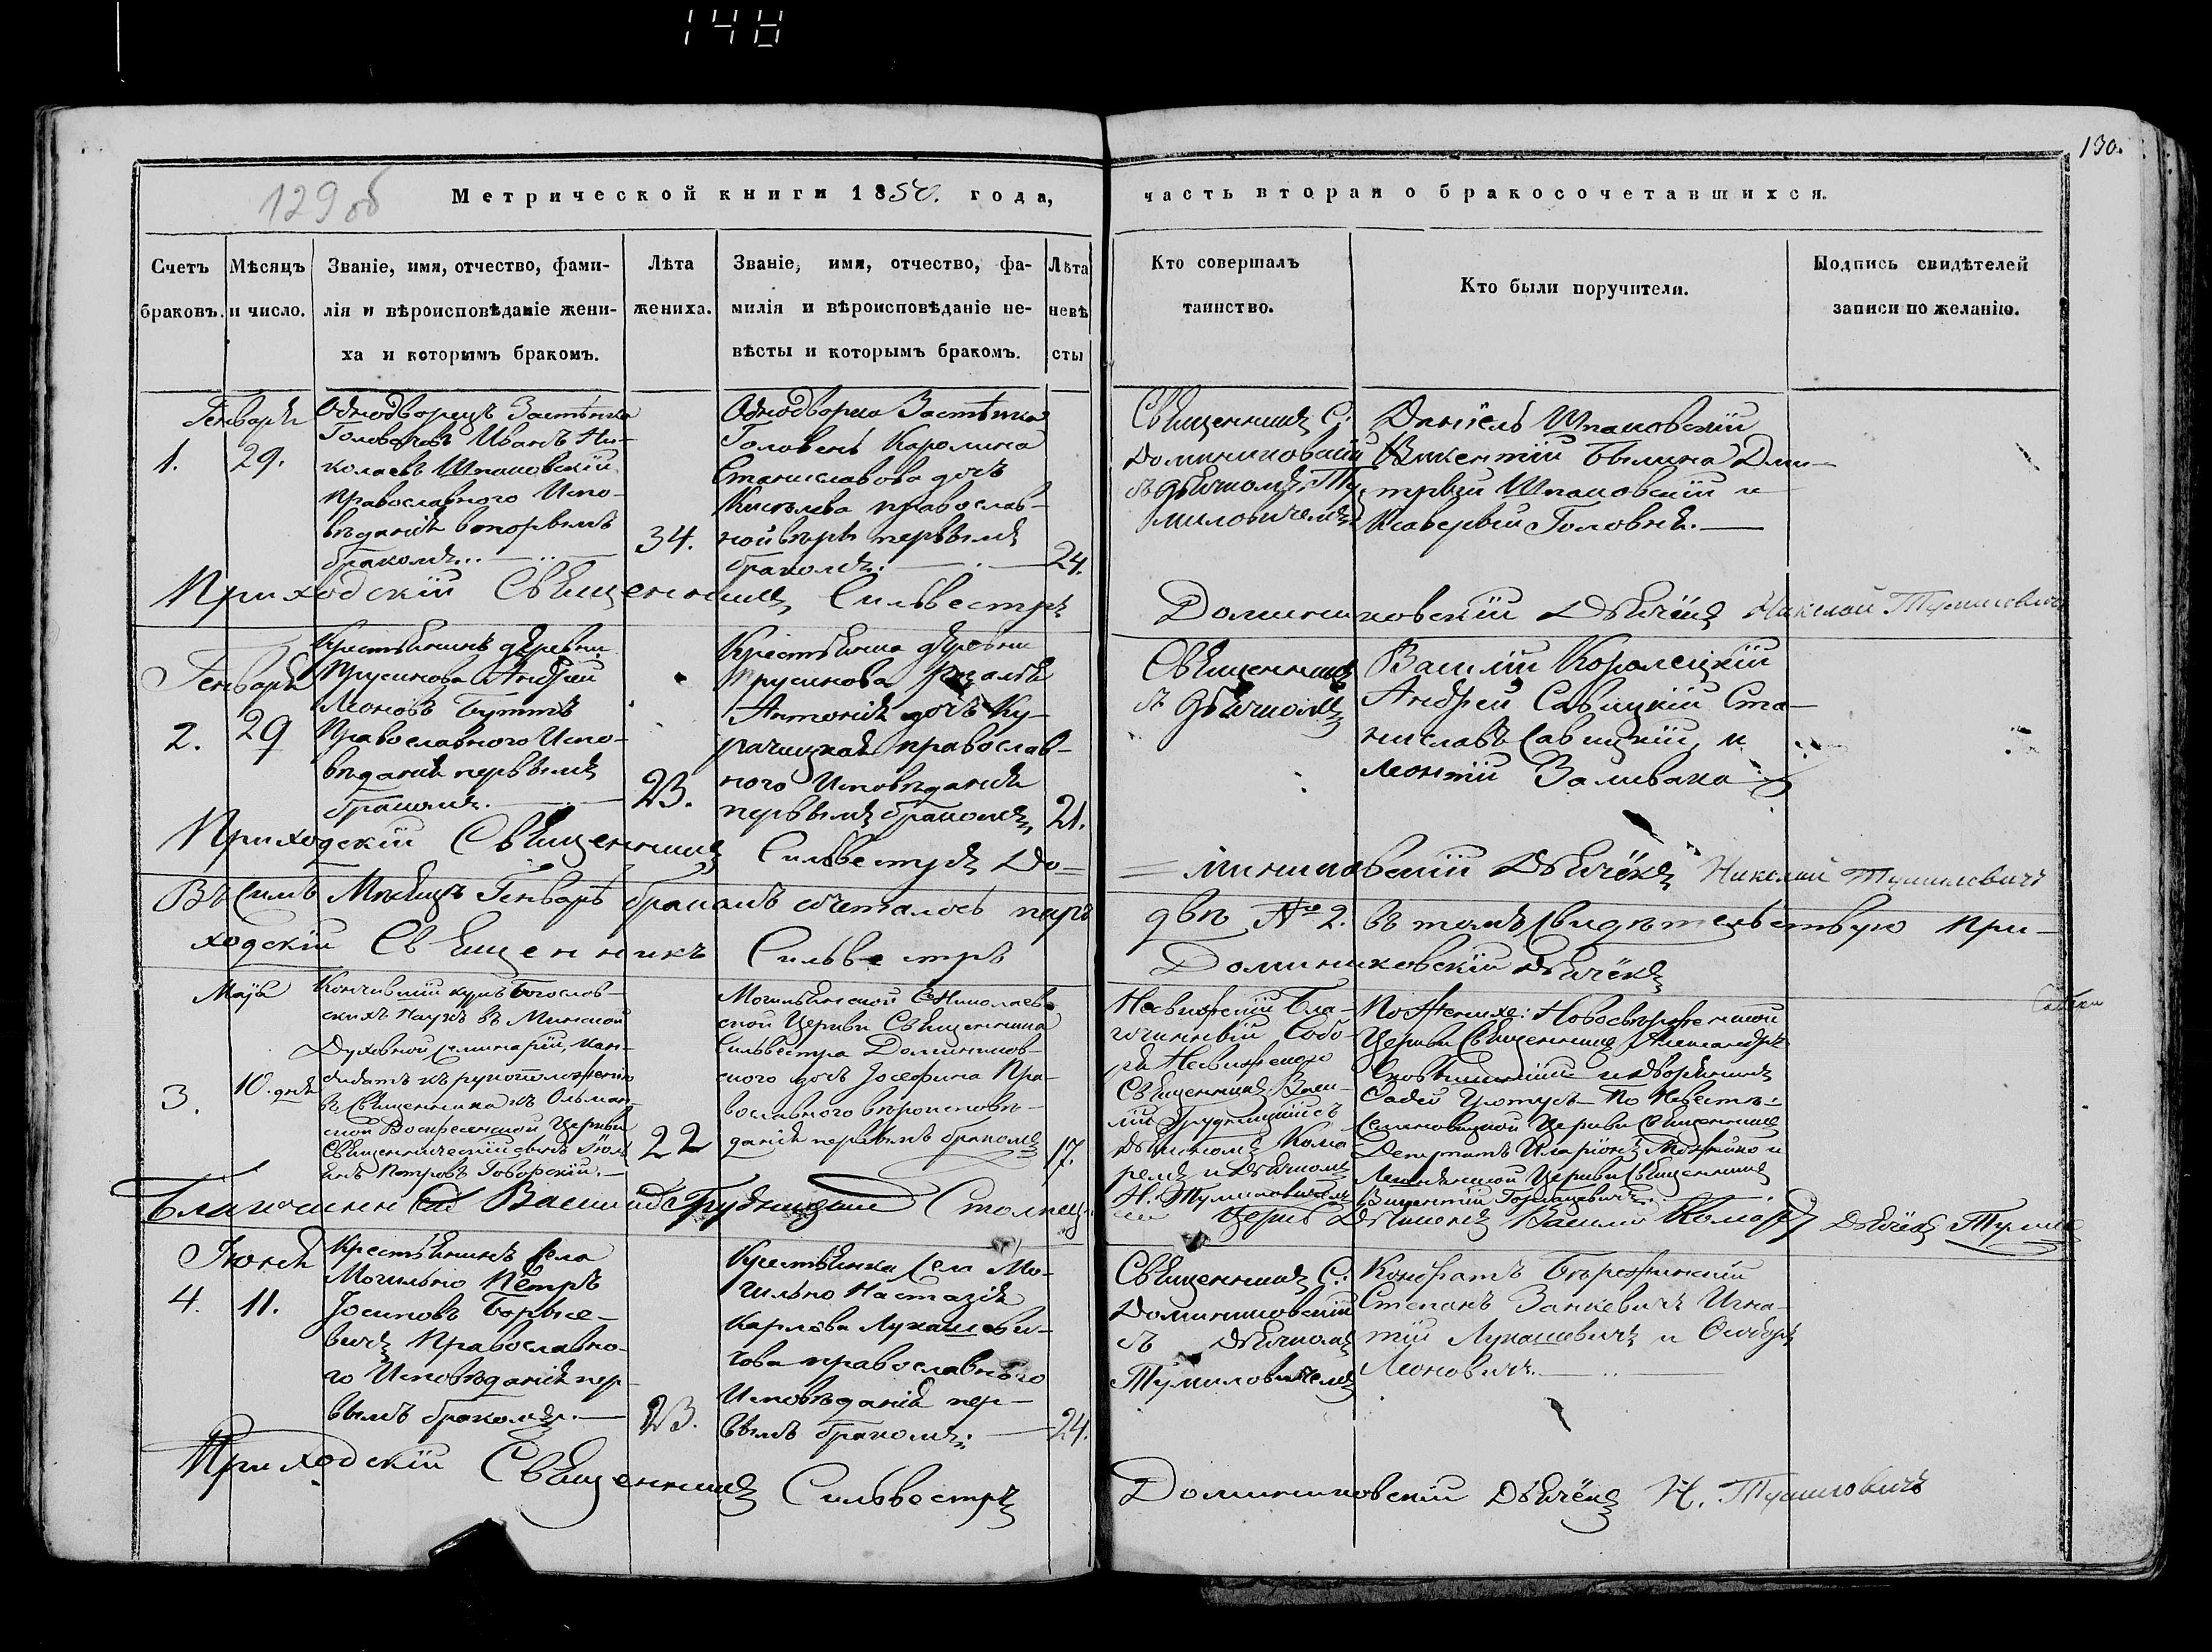 148
130.
129 об
Метрической книги 1850. года,
часть вторая о бракосочетавшихся.
Счетъ браковъ.
Мѣсяцъ и число.
Званіе, имя, отчество, фами-
лія и вѣроисповѣданіе жени-
ха и которымъ бракомъ.
Лѣта
жениха.
Званіе, имя, отчество, фа-
милія и вѣроисповѣданіе не-
вѣсты и которымъ бракомъ.
Лѣта
невѣ
сты
Кто совершалъ
таинство.
Кто были поручители.
Подпись свидѣтелей
записи по желанію.
Генваря
1.
29.
Однодворецъ Застѣнка
Иванъ Ни-
колаевъ Шпаковскій
православного Испо-
вѣданія вторымъ
бракомъ
34.
Однодворка Застѣнка
Каролина
Станиславова дочь
православ-
ной вѣры первымъ
бракомъ
24.
Священникъ С.
Доминиковскій
съ дьячкомъ Ту-
миловичемъ
Даніель Шпаковскій
Викентій Былина Дми-
трій Шпаковскій и
Ксаверій Головня.
Приходскій Священникъ Сильвестръ
Доминиковскій Дьячёкъ Николай Тумиловичъ
Генваря
2.
29
Крестьянинъ деревни
Трусинова Андрей
Леоновъ
Православного Испо-
вѣданія первымъ
бракомъ.
23.
Крестьянка деревни
Трусинова Розалія
Антонія дочь Ку-
рачицкая православ-
ного Исповѣданія
первымъ бракомъ
21.
Священникъ
съ дьячкомъ
Василій Королецкій
Андрей Савицкій Ста-
ниславъ Савицкій и
Леонтій Заливака
Приходскій Священникъ Сильвестръ До-
миниковскій Дьячёкъ Николай Тумиловичъ
Въ Семъ Мѣсяцѣ Генварѣ бракомъ сочеталось паръ
двѣ № 2. въ томъ свидѣтельствую При-
ходскій Священникъ Сильвестръ
Доминиковскій Дьячёкъ
Маія
3.
10. дня
Кончившій курсъ Богослов-
скихъ Наукъ въ Минской
Духовной Семинаріи, кан-
дидатъ къ рукоположенію
въ Священника къ Ольман-
ской Воскресенской Церкви
Священническій сынъ
Петровъ Говорскій.
22
Могильянской С. Николаев-
ской Церкви Священника
Сильвестра Домиников-
ского дочь Іосефина Пра-
вославного вѣроисповѣ-
данія первымъ бракомъ
17.
Несвижскій Бла-
гочинный Собо-
ра Несвижского
Священникъ Васи-
лій Грудницкій съ
Дьякономъ Кома-
ремъ и Дьячкомъ
Н. Тумиловичемъ
По Женихѣ: Новосверженской
Церкви Священникъ Александръ
и дворянинъ
Садей По Невестѣ:
Церкви Священникъ
Депутатъ Иларіонъ и
Церкви Священникъ
Викентій
Благочинный Василій Грудницкій
Церкв Дьяконъ Василій Комаръ Дьячёкъ Тумил
Іюня
4.
11.
Крестьянинъ села
Могильно Пётръ
Іосиповъ Борысе-
вичъ Православно-
го Исповѣданія пер-
вымъ бракомъ.
23.
Крестьянка села Мо-
гильно Настазія
Карлова Лукашеви-
чова православного
Исповѣданія пер-
вымъ бракомъ.
24.
Священникъ С.
Доминиковскій
съ Дьячкомъ
Тумиловичемъ
Кондратъ Бережинскій
Степанъ Занкевичъ Игна-
тій Лукашевичъ и
Леоновичъ.
Приходскій Священникъ Сильвестръ
Доминиковскій Дьячёкъ Н. Тумиловичъ